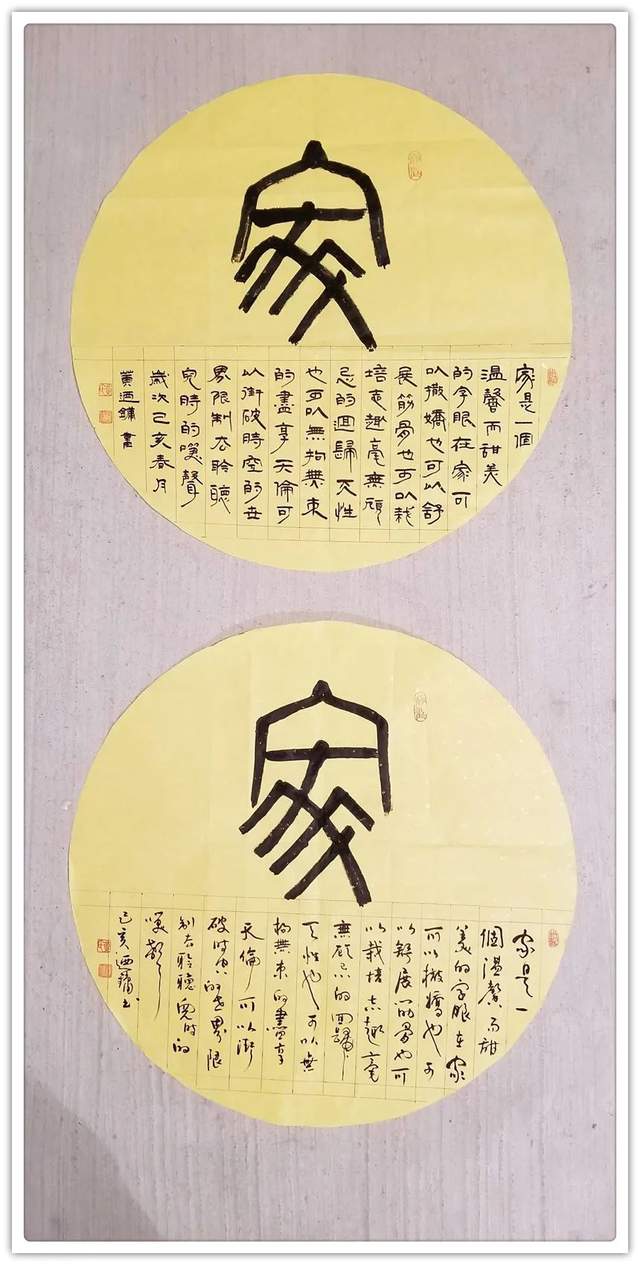 家
家是一個
溫馨而甜美
的字眼在家可
以撒嬌也可以舒
展筋骨也可以栽
培志趣毫無顧
忌的迴歸天性
也可以無拘無束
的盡享天倫可
以衝破時空的世
界限制去聆聽
兒時的喚聲
歲次己亥春月
黃迺鏞書
家
家是一
個溫馨而甜
美的字眼在家
可以撒嬌也可
以舒展筋骨也可
以栽培志趣毫
無顧忌的回歸
天性也可以無
拘無束的盡享
天倫可以衝
破時空的世界限
制去聆聽兒時的
喚聲
己亥迺鏞書